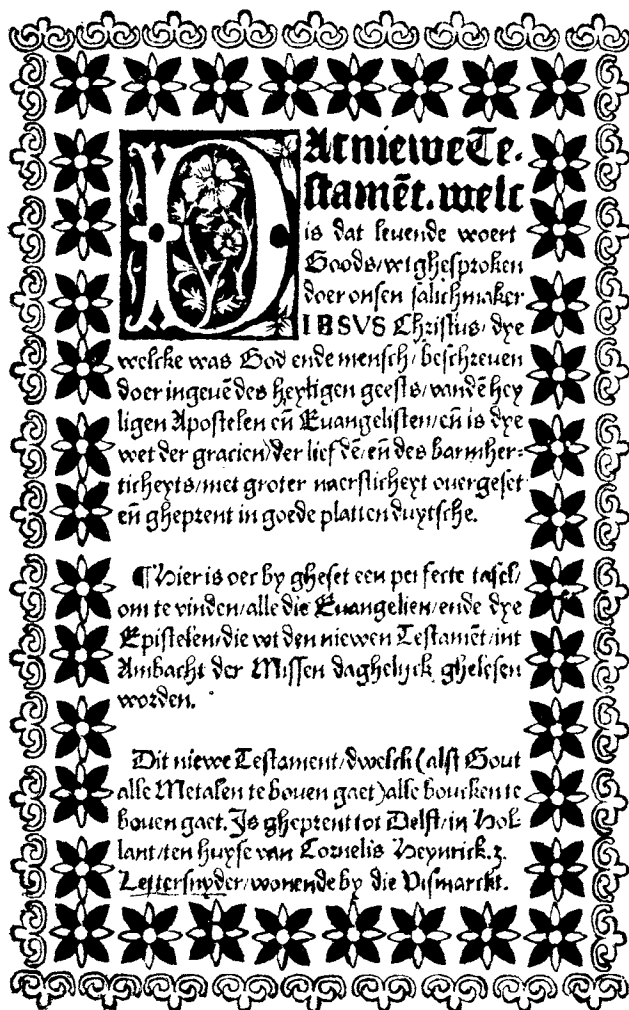 DAt niewe Te-
stamēt. welc
is dat leuende woert
Goods/wt ghesproken
doer onsen salichmaker
IESVS Christus/dye
welcke was God ende mensch/beschreuen
doer ingeuē des heyligen geests/vandē hey
ligen Apostelen eñ Euangelisten/eñ is dye
wet der gracien/der liefdē/eñ des barmher-
ticheyts/met groter naersticheyt ouergeset
eñ gheprent in goede platten duytsche.
¶Hier is oer by gheset een perfecte tafel/
om te vinden/alle die Euangelien/ende dye
Epistelen/die wt den niewen Testamēt/int
Ambacht der Missen daghelijck ghelesen
worden.
Dit niewe Testament/dwelck (alst Gout
alle Metalen te bouen gaet) alle boucken te
bouen gaet. Is gheprent tot Delft/in Hol
lant/ten huyse van Cornelis Heynrick.z.
Lettersnyder/wonende by die Vismarckt.